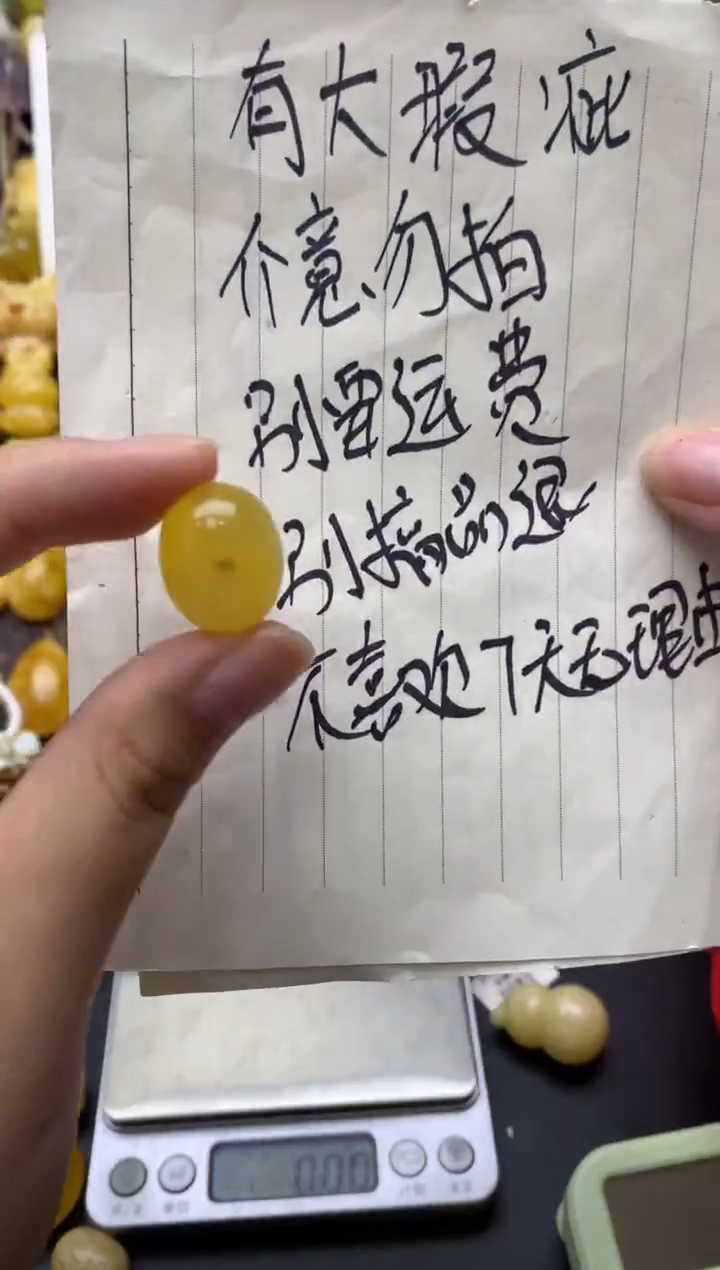 有大瑕疵
介意勿拍
别要运费
别搞品退
不喜欢7天无理由
0.00